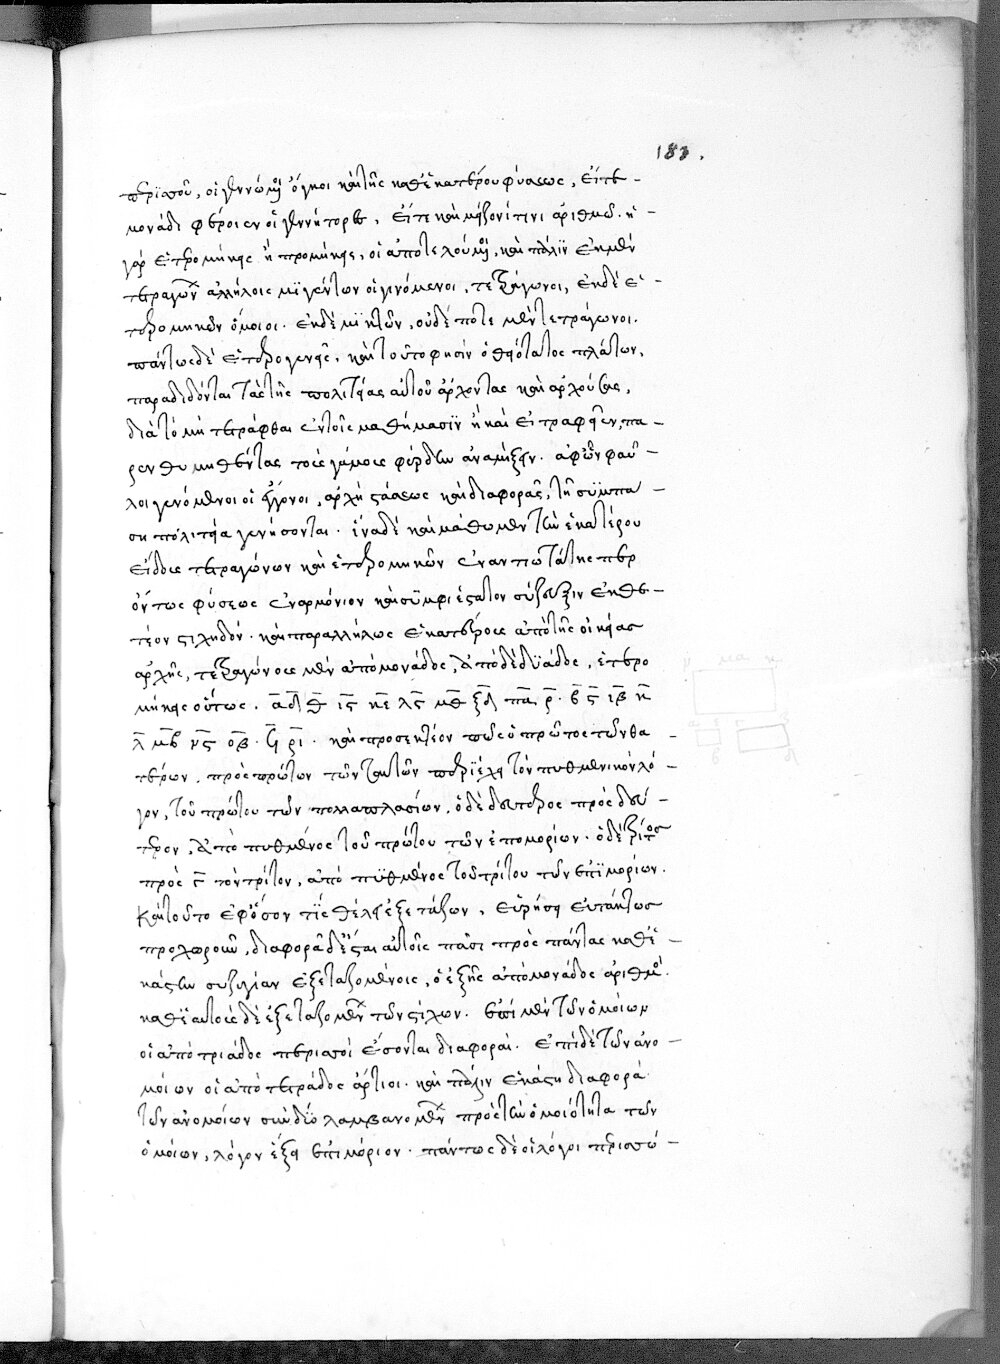 περισσοῦ, οἱ γεννώμενοι ὄγκοι καὶ τῆς καθ' ἑκατέρου φύσεως, εἴτε –
μονάδι φέροιεν οἱ γεννήτορες, εἴτε καὶ μείζονί τινι ἀριθμῷ. ἢ –
γὰρ ἑτερομήκεις ἢ προμήκεις, οἱ ἀποτελούμενοι, καὶ πάλιν ἐκ μὲν
τετραγώνων ἀλλήλοις μιγέντων οἱ γινόμενοι, τετράγωνοι, ἐκ δὲ ἑ –
τερομηκῶν ὅμοιοι. ἐκ δὲ μικτῶν, οὐδέποτε μὲν τετράγωνοι.
πάντως δὲ ἑτερογενεῖς, καὶ τοῦτο φησὶν ὁ θειότατος πλάτων,
παραδιδόνται τὰς τῆς πολιτείας αὐτοῦ ἄρχοντας καὶ ἀρχούσας,
διὰ τὸ μὴ τετράφθαι ἐν τοῖς μαθήμασϊν ἢ καὶ εἰ τραφεῖεν, πα –
ρενθυμηθέντας τοὺς γάμους φύρδην ἀναμίξειν. ἀφ' ὧν φαῦ –
λοι γενόμενοι οἱ ἔγγονοι, ἀρχὴ στάσεως καὶ διαφορᾶς, τῇ συμπά –
σῃ πόλιτεία γενήσονται. ἵνα δὲ καὶ μάθωμεν τὴν ἑκατέρου
εἴδους τετραγώνων καὶ ἑτερομηκῶν ἐναντιωτάτης περ
ὄντως φύσεως ἐναρμόνιον καὶ συμφιέστατον σύζευξιν ἐκθε –
τέον στιχηδόν. καὶ παραλλήλως ἑκατέρους ἀπὸ τῆς οἰκείας
ἀρχῆς, τετραγώνους μὲν ἀπὸ μονάδος, ἀπὸ δὲ δυάδος, ἑτερο
μήκεις οὕτως. α δ θ ις κε λς μθ ξδ πα ρ. β ς ιβ κ
λ μβ νς οβ. ϟ ρι. καὶ προσεκτέον πῶς ὁ πρῶτος τῶν θα –
τέρων, πρὸς πρῶτον τῶν ταυτῶν περϊέχει τὸν πυθμενικὸν λό –
γον, τοῦ πρώτου τῶν πολλαπλασίων, ὁ δὲ δεύτερος πρὸς δεύ –
τερον, ἀπὸ πυθμένος τοῦ πρώτου τῶν ἐπιμορίων. ὁ δὲ τρίτος
πρὸς γ τὸν τρίτον, ἀπὸ πυθμένος τοῦ τρίτου τῶν ἐπϊμορίων.
καὶ τοῦτο ἐφ' ὅσον τὶς θέλει ἐξετάζων, εὑρήσει εὐτάκτως
προχωροῦν, διαφορὰ δ' ἔσται αὐτοῖς πᾶσι πρὸς πάντας καθ' ἑ –
κάστην συζυγίαν ἐξεταζομένοις, ὁ ἐξῆς ἀπὸ μονάδος ἀριθμὸς.
καθ' ἑαυτοὺς δὲ ἐξεταζομένων τῶν στίχων. ἐπὶ μὲν τῶν ὁμοίων
οἱ ἀπὸ τριάδος περισσοὶ ἔσονται διαφοραὶ. ἐπὶ δὲ τῶν ἀνο –
μοίων οἱ ἀπὸ τετράδος ἄρτιοι. καὶ πάλιν ἑκάστη διαφορὰ
τῶν ἀνομοίων σὺν δύο λαμβανομένων πρὸς τὴν ὁμοιότητα τῶν
ὁμοίων, λόγον ἕξει ἐπιμόριον. πάντως δὲ οἱ λόγοι περισσώ –